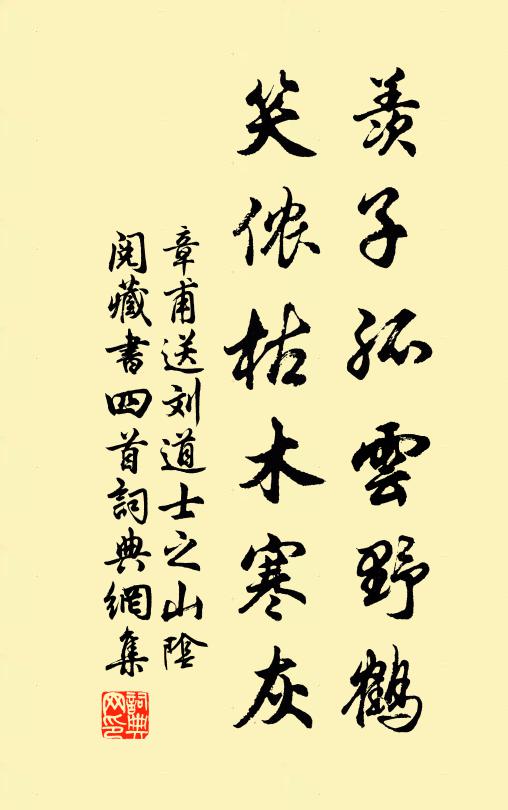 羨子孤雲野鶴
笑侬枯木寒灰
章甫送刘道士之山陰
閱藏書四首詞典網集
詞典网印